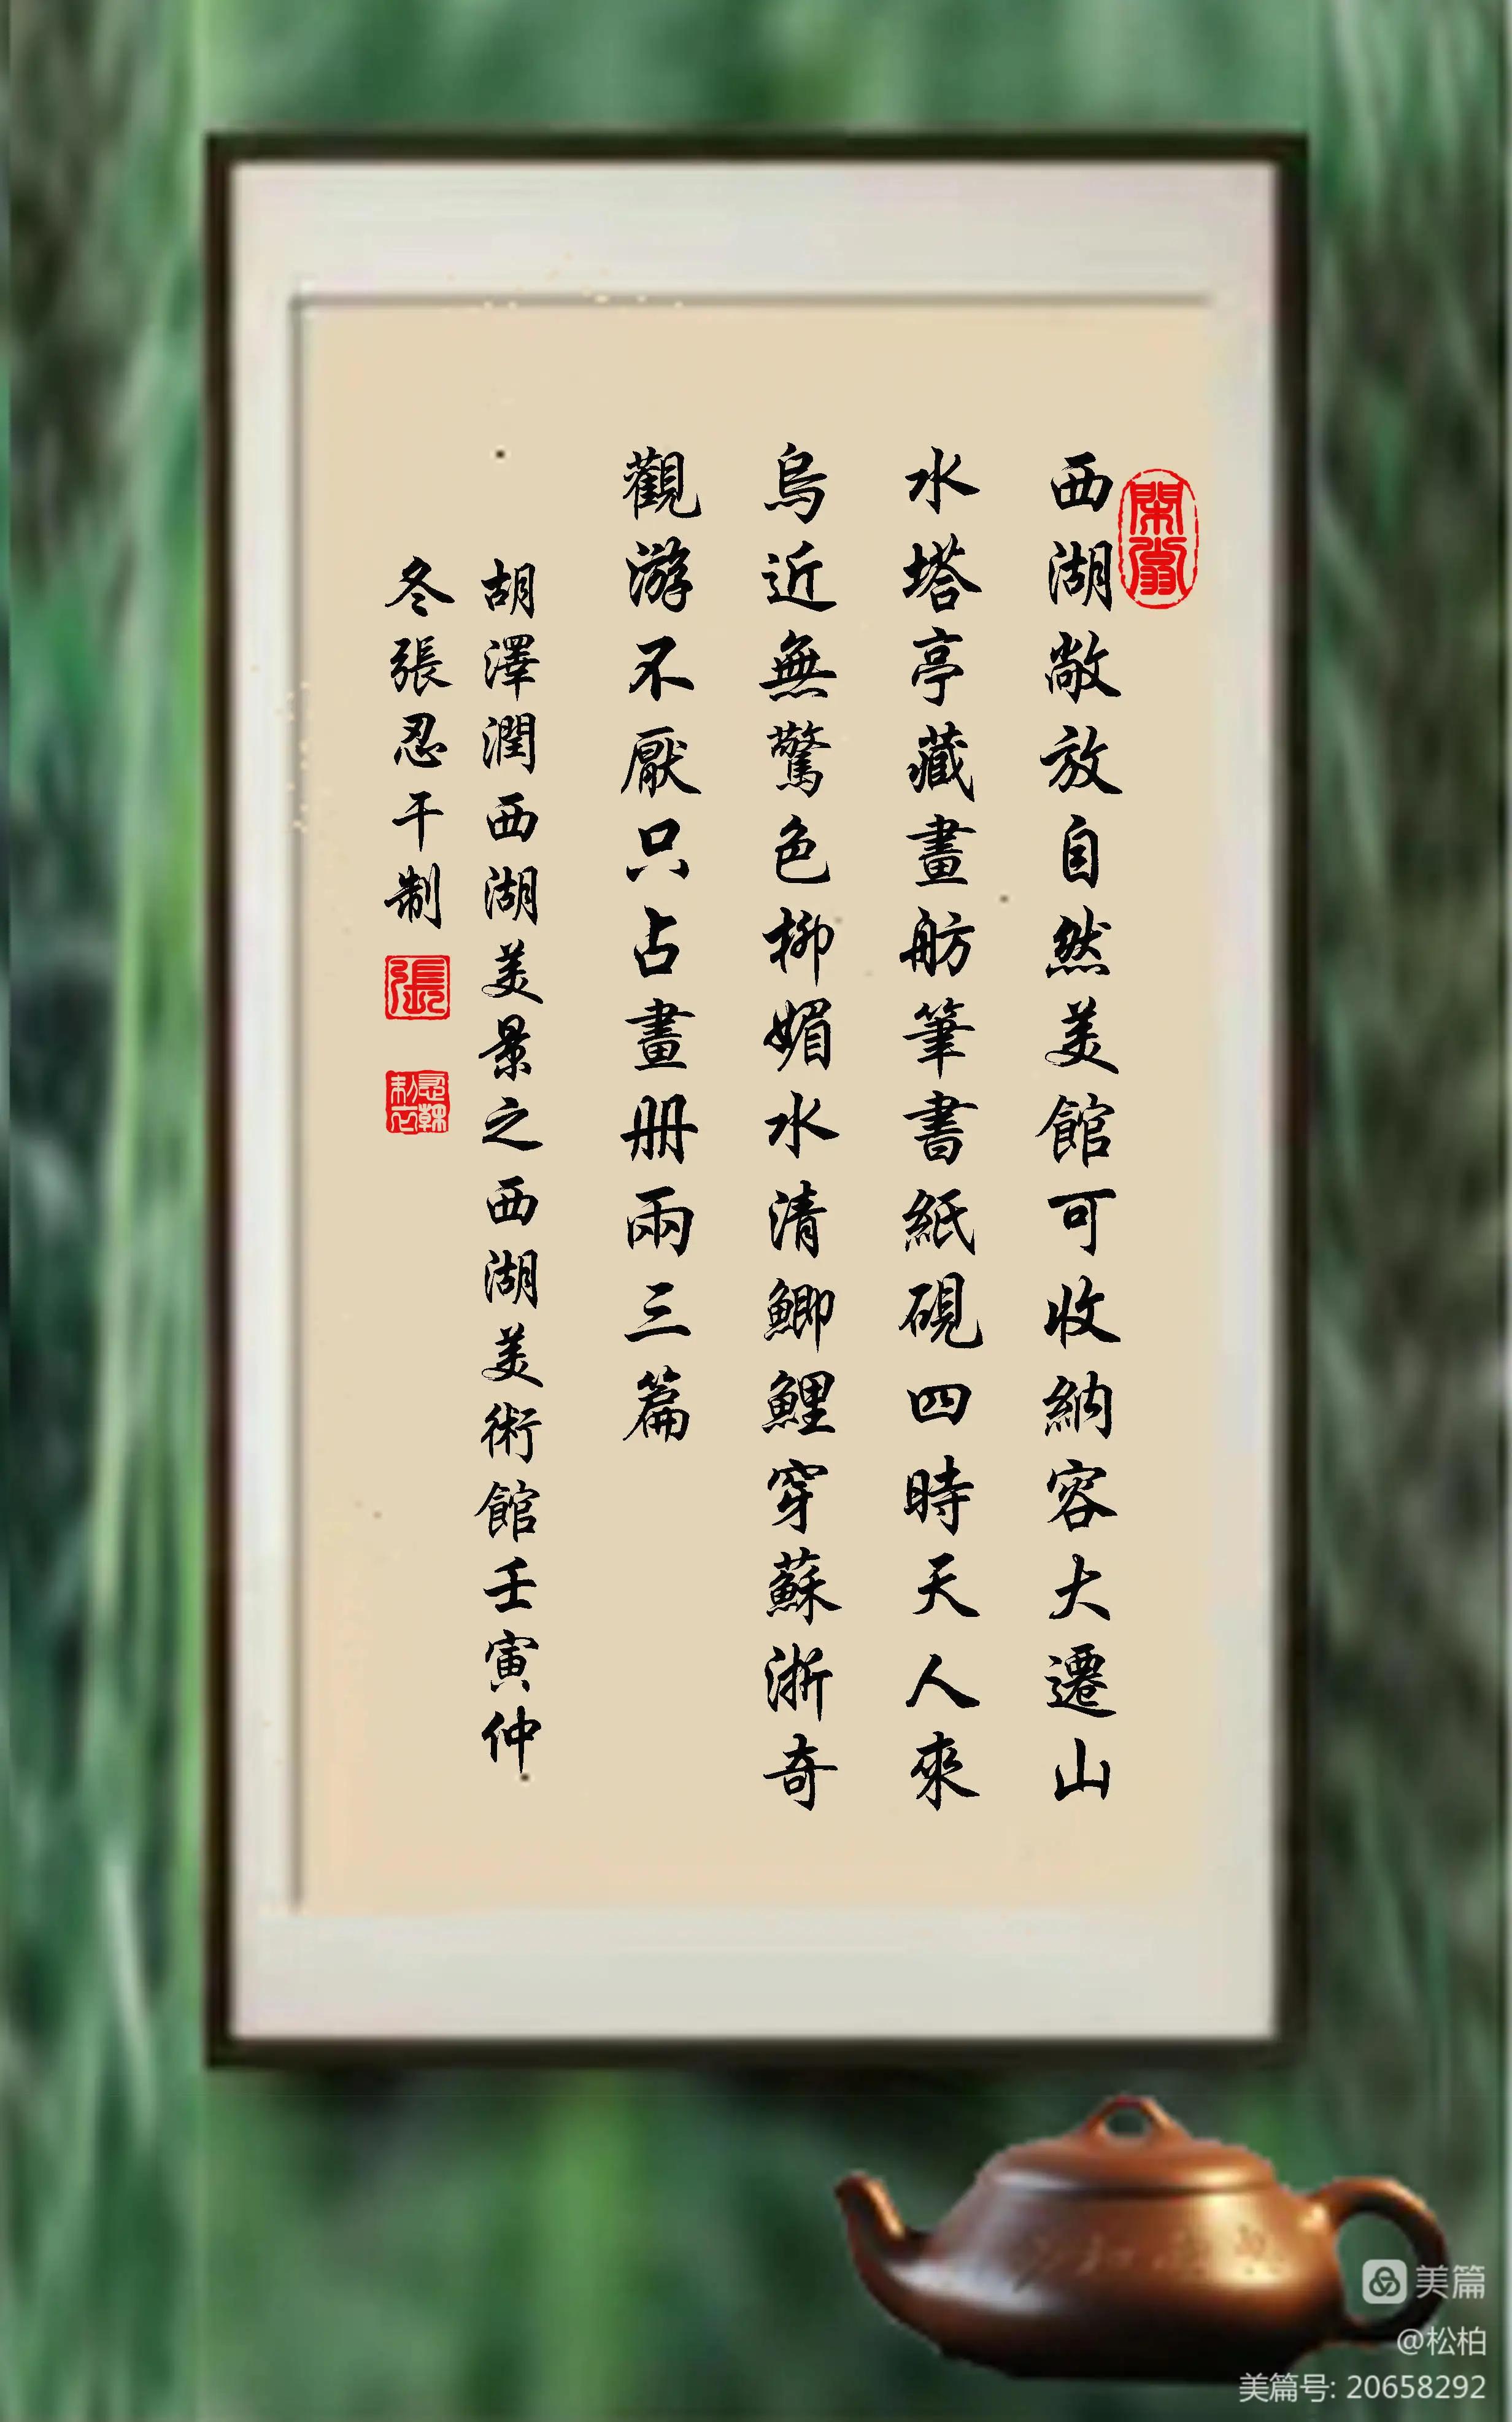 西湖敞放自然美館可收納容大遷山
水塔亭藏畫舫筆書紙硯四時天人來
烏近無驚色柳媚水清鯽鯉穿蘇浙奇
觀游不厭只占畫册兩三篇
胡澤潤西湖美景之西湖美術館壬寅仲
冬張忍干制
張
美篇
@松柏
美篇号: 20658292